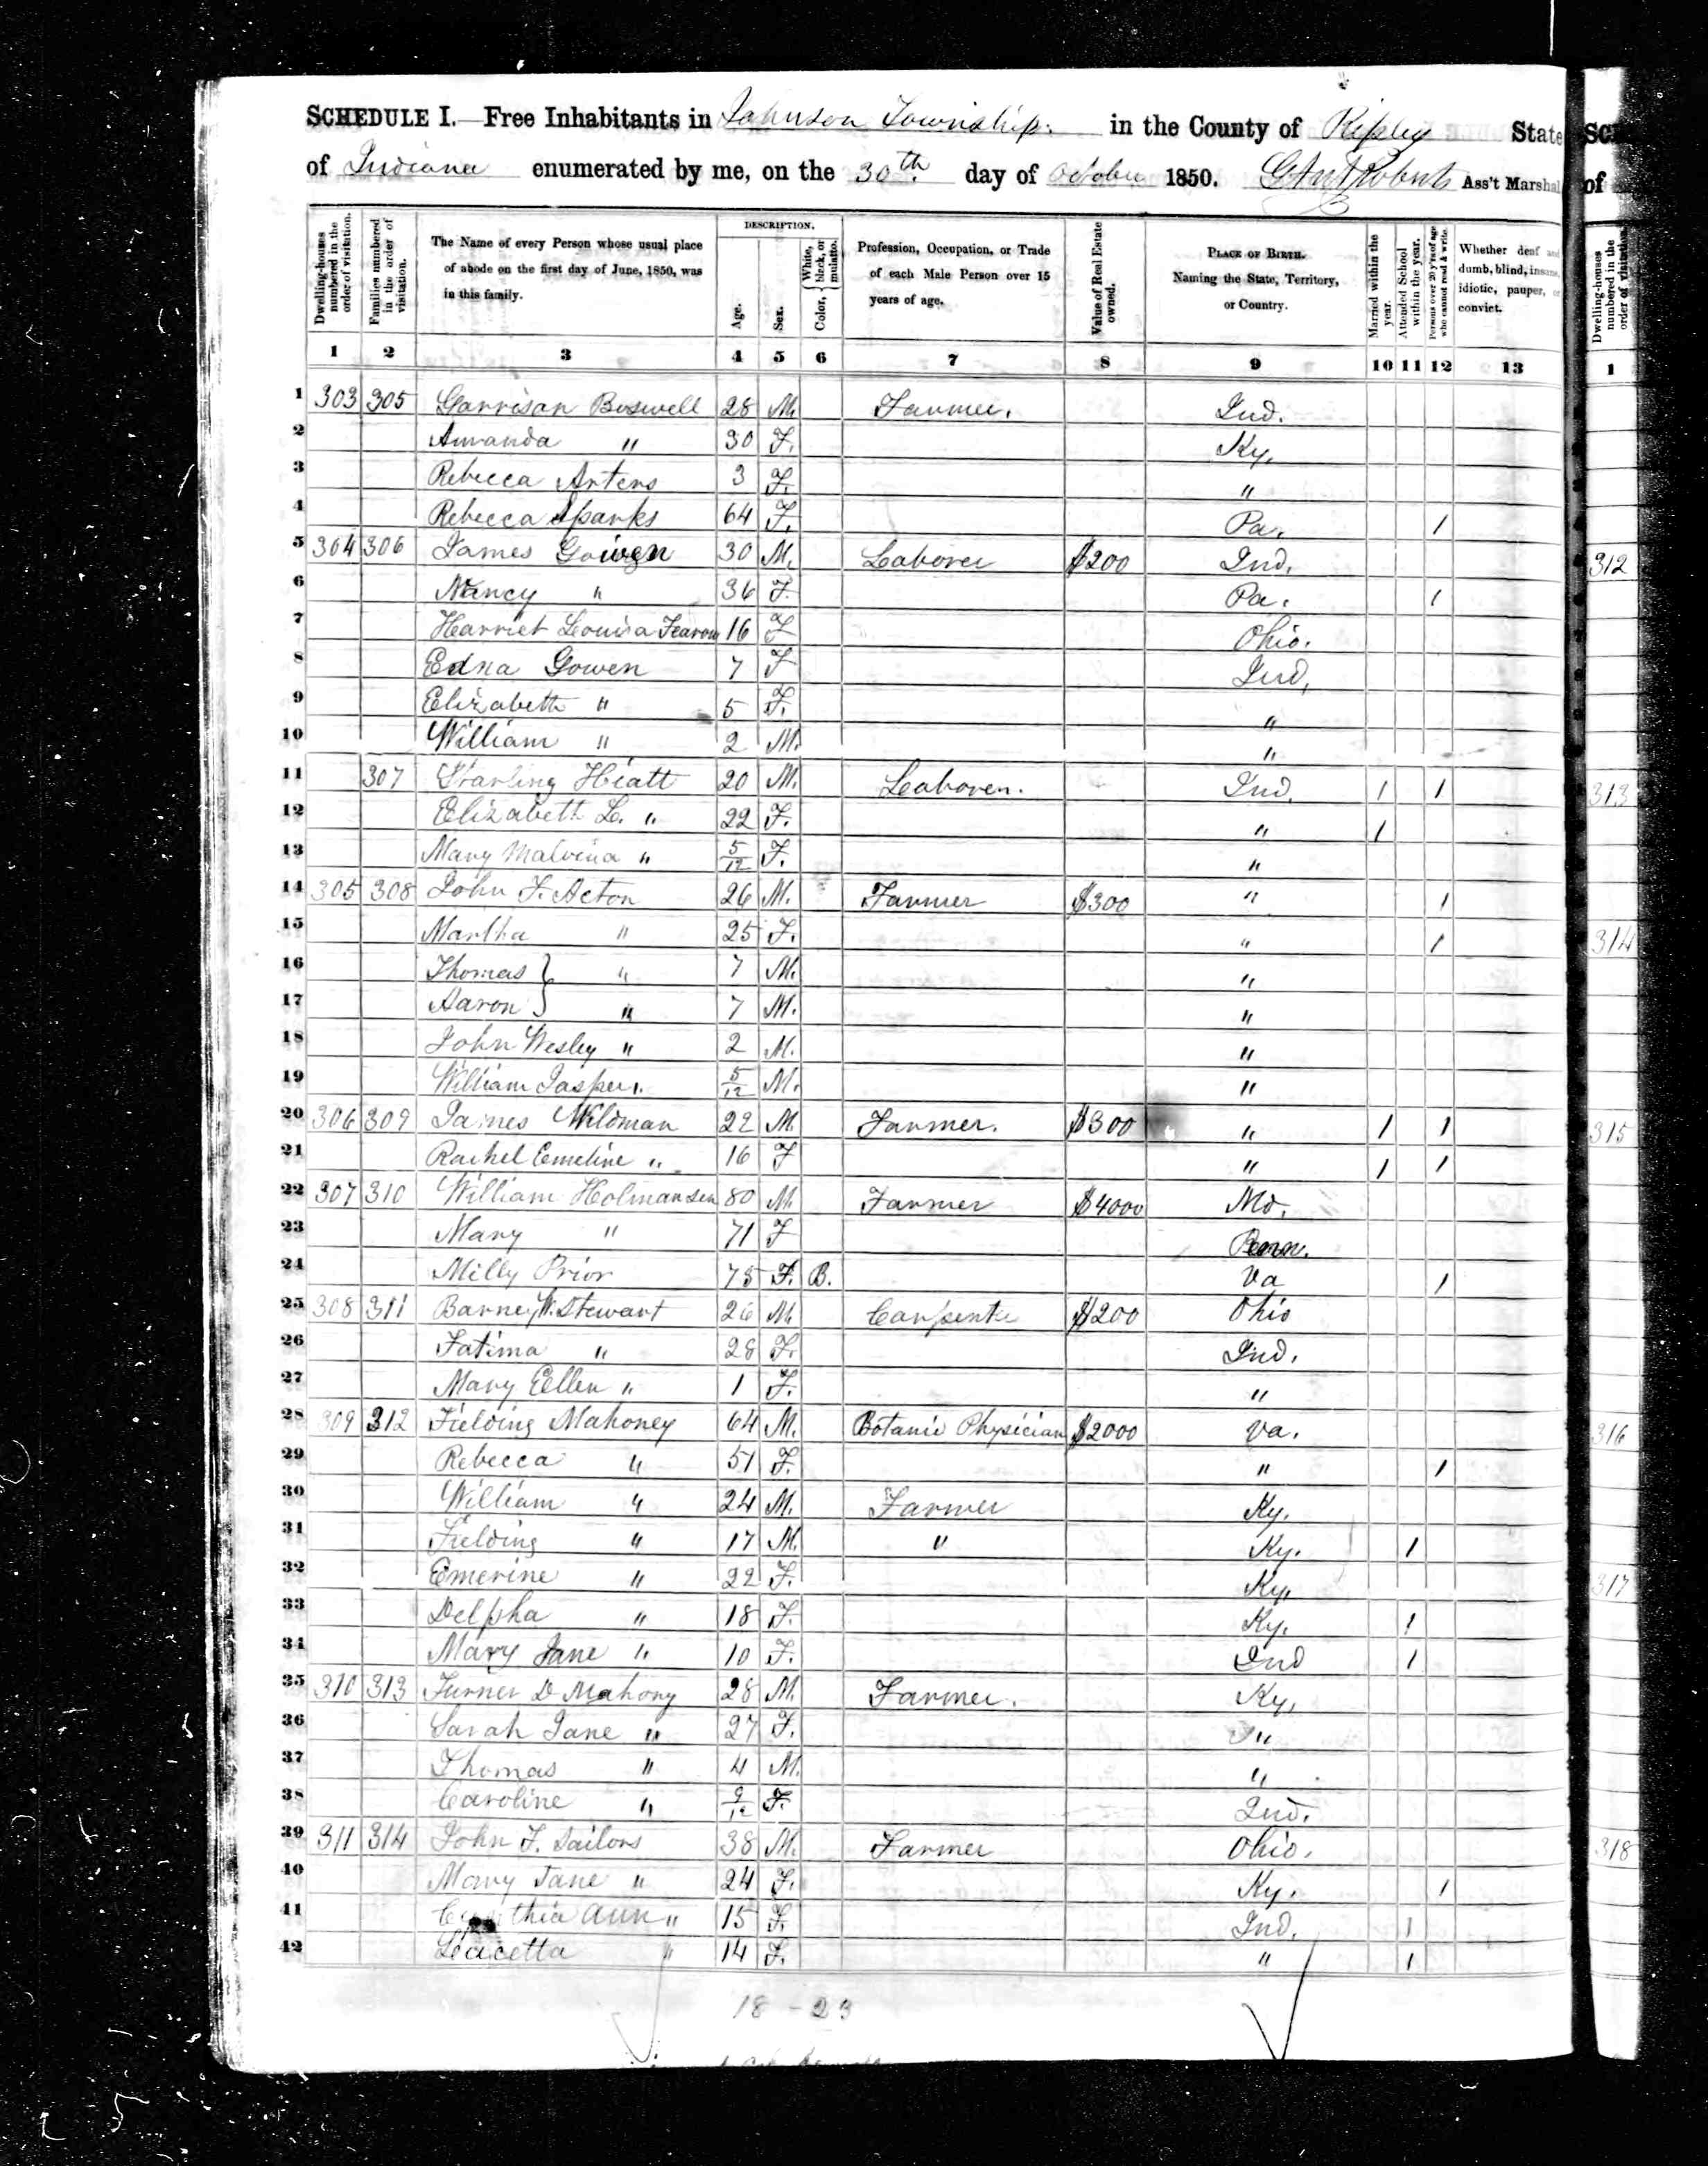 SCHEDULE I.—Free Inhabitants in Johnson Township in the County of Ripley State
of Indiana enumerated by me, on the 30th day of October 1850. Ass't Marshal
Dwelling-houses numbered in the order of visitation.
Families numbered in the order of visitation.
The Name of every Person whose usual place of abode on the first day of June, 1850, was in this family.
DESCRIPTION.
Age.
Sex.
Color, { White, black, or mulatto.
Profession, Occupation, or Trade of each Male Person over 15 years of age.
Value of Real Estate owned.
PLACE OF BIRTH. Naming the State, Territory, or Country.
Married within the year.
Attended School within the year.
Persons over 20 y'rs of age who cannot read & write.
Whether deaf and dumb, blind, insane, idiotic, pauper, or convict.
1 2 3 4 5 6 7 8 9 10 11 12 13
1 303 305 Garrison Boswell 28 M. Farmer. Ind.
2 Amanda " 30 F. Ky.
3 Rebecca Arters 3 F. "
4 Rebecca Sparks 64 F. Pa. 1
5 304 306 James Gowen 30 M. Laborer $200 Ind.
6 Nancy " 36 F. Pa. 1
7 Harriet Louisa 16 F Ohio.
8 Edna Gowen 7 F Ind.
9 Elizabeth " 5 F. "
10 William " 2 M. "
11 307 Starling Hiatt 20 M. Laborer. Ind. 1 1
12 Elizabeth L. " 22 F. " 1
13 Mary Malvina " 5/12 F. "
14 305 308 John F. Acton 26 M. Farmer $300 " 1
15 Martha " 25 F. " 1
16 Thomas } " 7 M. "
17 Aaron } " 7 M. "
18 John Wesley " 2 M. "
19 William Jasper " 5/12 M. "
20 306 309 James Wildman 22 M. Farmer. $300 " 1 1
21 Rachel Emeline " 16 F " 1 1
22 307 310 William Holman Sen 80 M. Farmer $4000 Md.
23 Mary " 71 F Penn.
24 Milly Prior 75 F. B. Va 1
25 308 311 Barney W. Stewart 26 M. Carpenter $200 Ohio
26 Fatima " 28 F. Ind.
27 Mary Ellen " 1 F. "
28 309 312 Fielding Mahoney 64 M. Botanic Physician $2000 Va.
29 Rebecca " 51 F. " 1
30 William " 24 M. Farmer Ky.
31 Fielding " 17 M. " Ky. 1
32 Emerine " 22 F. Ky.
33 Delpha " 18 F. Ky. 1
34 Mary Jane " 10 F. Ind 1
35 310 313 Turner D Mahony 28 M. Farmer. Ky.
36 Sarah Jane " 27 F. "
37 Thomas " 4 M. "
38 Caroline " 9/12 F. Ind.
39 311 314 John F. Sailors 38 M. Farmer Ohio.
40 Mary Jane " 24 F. Ky. 1
41 Cynthia Ann " 15 F. Ind. 1
42 " 14 F. " 1
18 - 23
SC
of
Dwelling-houses numbered in the order of visitation.
1
312
313
314
315
316
317
318